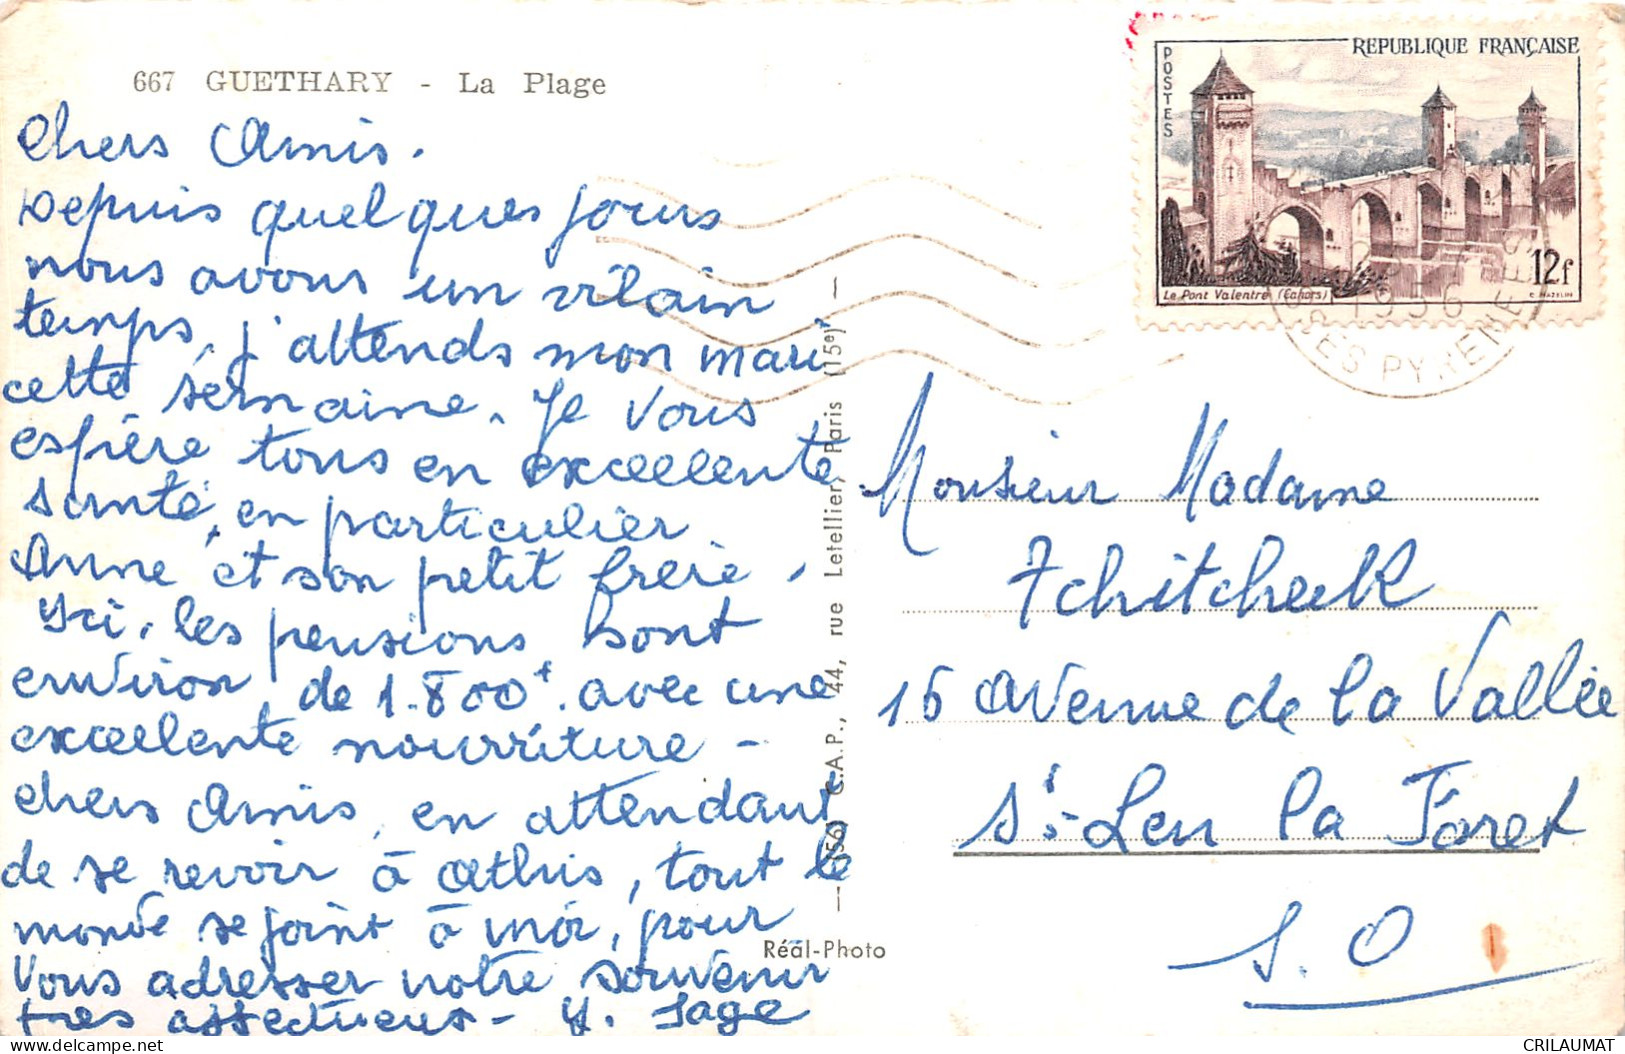 667 GUETHARY - La Plage
Chers Amis.
Depuis quelques jours
nous avons un vilain
temps, j'attends mon mari
cette semaine. Je vous
espère tous en excellente
santé, en particulier
Anne et son petit frère.
Ici, les pensions sont
environ de 1.800f. avec une
excellente nourriture -
chers Amis, en attendant
de se revoir à Athis, tout le
monde se joint à moi, pour
vous adresser notre souvenir
très affectueux - Y. Sage
(56) C.A.P., 44, rue Letellier, Paris (15e)
Réal-Photo
POSTES
REPUBLIQUE FRANÇAISE
12f
Le Pont Valentré (Cahors)
C. MAZELIN
1956
SES PYRENEES
Monsieur Madame
Tchitcheck
15 Avenue de la Vallée
St-Leu la Foret
S. O
CRILAUMAT